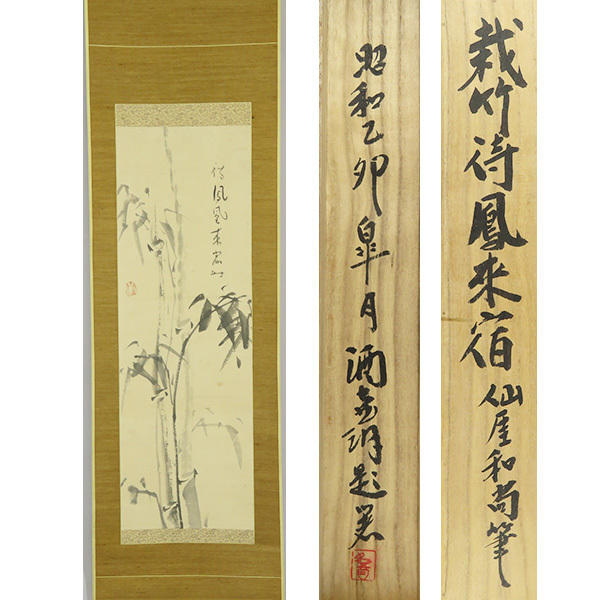 待鳳凰来宿
昭和乙卯皐月 酒井玥題署
栽竹待鳳来宿 仙厓和尚筆